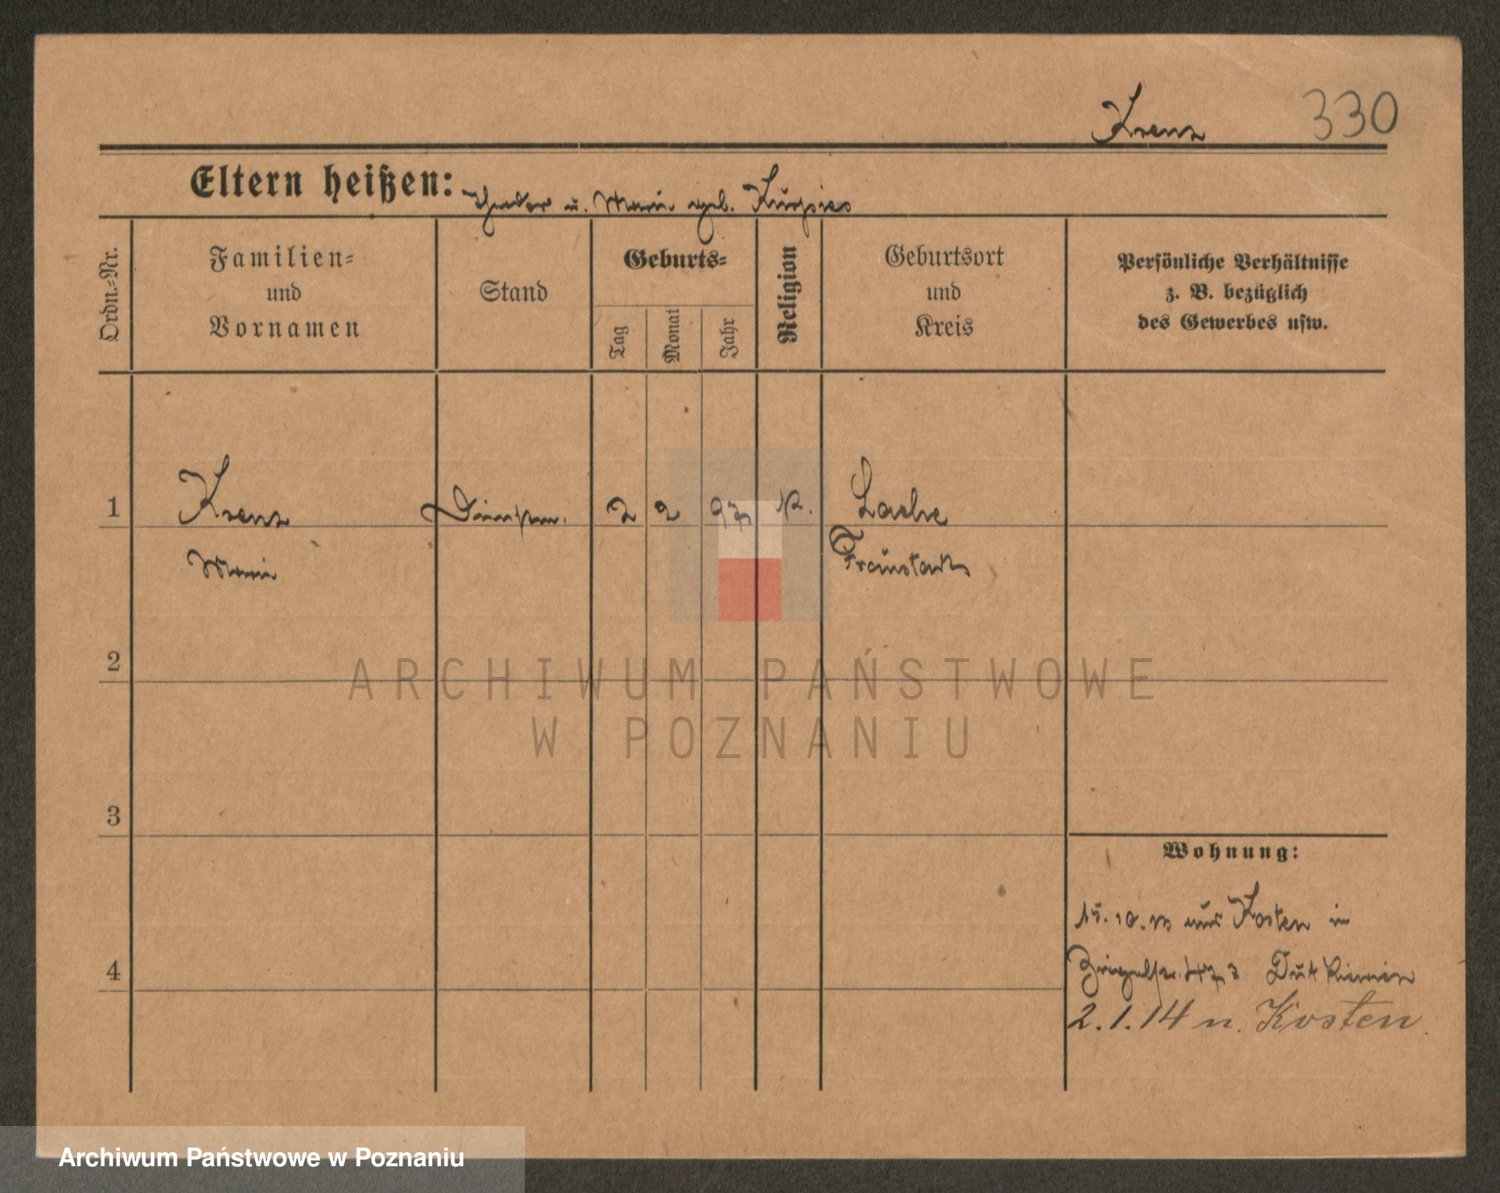 Krenz 330
Eltern heißen: Theodor u. Marie geb.
Ordn.-Nr.
Familien-
und
Vornamen
Stand
Geburts-
Tag
Monat
Jahr
Religion
Geburtsort
und
Kreis
Persönliche Verhältnisse
z. B. bezüglich
des Gewerbes usw.
1 Krenz 2 2 97 K. Lache
Marie Fraustadt
2
ARCHIWUM PAŃSTWOWE
W POZNANIU
3
Wohnung:
15.10.13 aus Kosten in
4
2.1.14 n. Kosten.
Archiwum Państwowe w Poznaniu